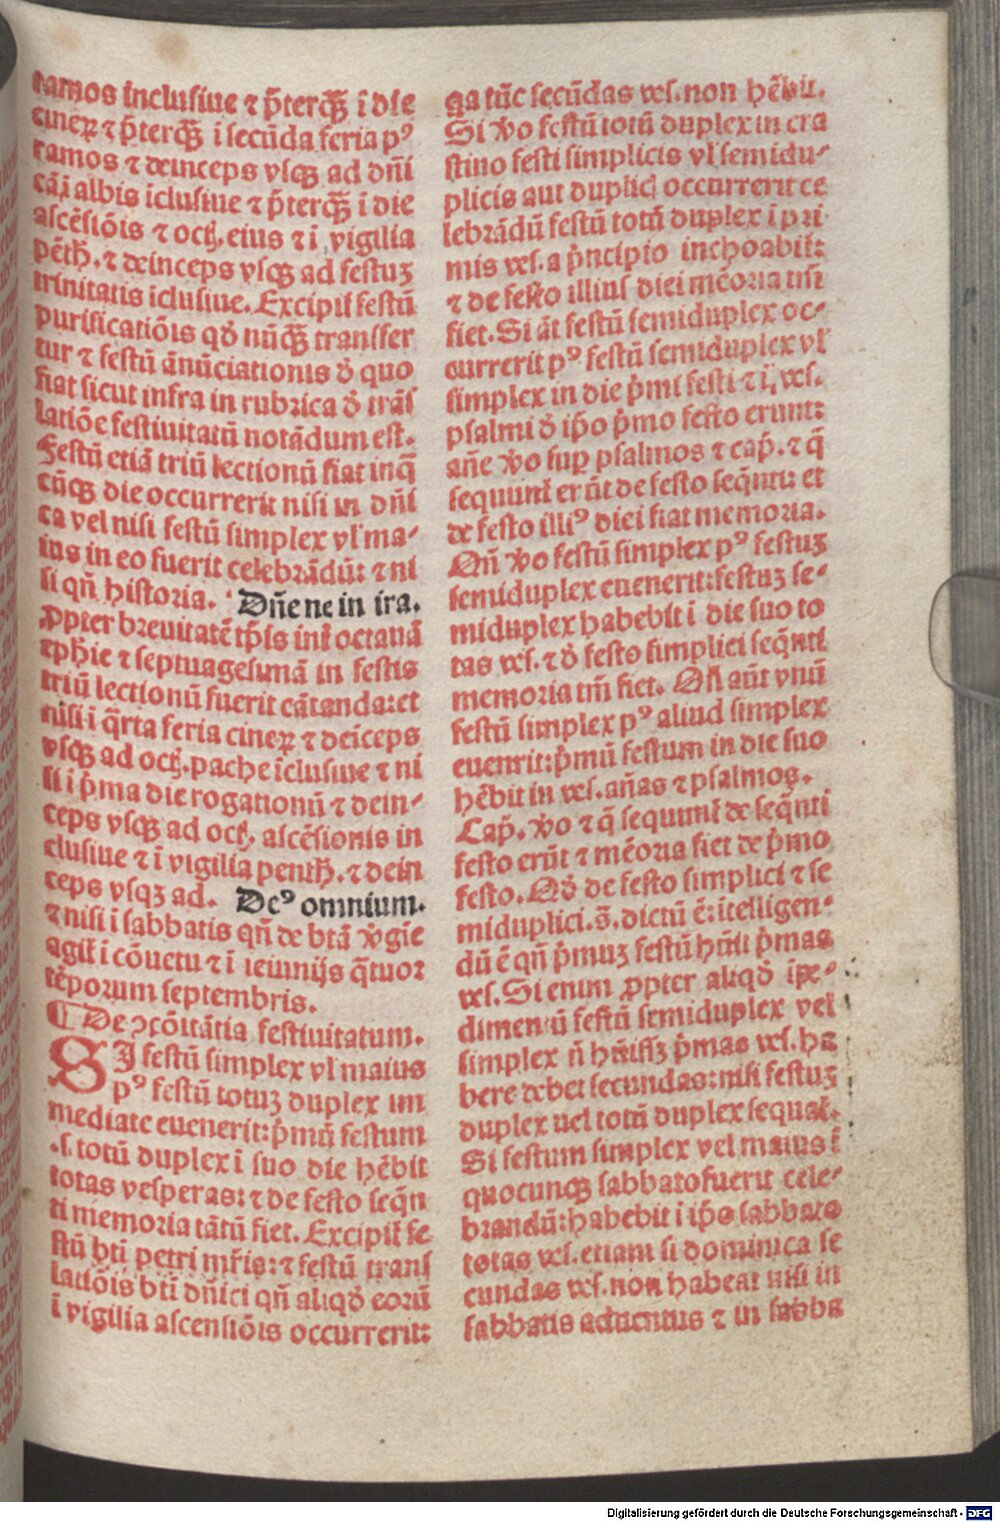 ramos inclusiue ⁊ p̄terq̄ꝫ i die
cineꝝ ⁊ p̄terq̄ꝫ i secūda feria pꝰ
ramos ⁊ deinceps vsqꝫ ad dn̄i
cā i albis iclusiue ⁊ p̄terq̄ꝫ i die
ascēsiōis ⁊ oct. eius ⁊ ī vigilia
pēth. ⁊ deinceps vsqꝫ ad festuꝫ
trinitatis iclusiue. Excipit̄ festū
purificatiōis qd̄ nūq̄ꝫ transfer
tur ⁊ festū ānūciationis d̄ quo
fiat sicut infra in rubrica d̄ trās
latiōe festiuitatū notādum est.
Festū etiā triū lectionū fiat inq̄
cūqꝫ die occurrerit nisi in dn̄i
ca vel nisi festū simplex vl̄ ma-
ius in eo fuerit celebrādū: ⁊ ni
si qn̄ historia. Dn̄e ne in ira.
ꝓpter breuitatē tp̄is int̄ octauā
epħie ⁊ septuagesimā in festis
triū lectionū fuerit cātanda: et
nisi i q̄rta feria cineꝝ ⁊ deiceps
vsqꝫ ad oct. pache iclusiue ⁊ ni
si i p̄ma die rogationū ⁊ dein-
ceps vsqꝫ ad oct. ascēsionis in
clusiue ⁊ ī vigilia penth. ⁊ dein
ceps vsqꝫ ad. Deꝰ omnium.
⁊ nisi i sabbatis qn̄ de btā v̄gīe
agit̄ i cōuetu ⁊ ī ieiunijs q̄tuor
tēporum septembris.
¶ De ꝯcōitātia festiuitatum.
SI festū simplex vl maius
pꝰ festū totuꝫ duplex im
mediate euenerit: p̄mū festum
.s. totū duplex i suo die hēbit
totas vesperas: ⁊ de festo seq̄n
ti memoria tātū fiet. Excipit̄ fe
stū bt̄i petri mr̄is: ⁊ festū trans
latiōis bt̄i dn̄ici qn̄ aliqd̄ eorū
ī vigilia ascensiōis occurrerit:
ga tūc secūdas ves. non hēbit.
Si v̄o festū totū duplex in cra
stino festi simplicis vl semidu-
plicis aut duplicꝭ occurrerit ce
lebrādū festū totū duplex i pri
mis ves. a p̄ncipio inchoabit̄:
⁊ de festo illius diei mēoria tm̄
fiet. Si āt festū semiduplex oc-
currerit pꝰ festū semiduplex vl̄
simplex in die p̄mi festi ⁊ ī ves.
psalmi d̄ ip̄o p̄mo festo erunt:
an̄e v̄o suꝑ psalmos ⁊ cap̄. ⁊ q̄
sequunt̄ erūt de festo seq̄nti: et
de festo illiꝰ diei fiat memoria.
Qn̄ v̄o festū simplex pꝰ festuꝫ
semiduplex euenerit: festuꝫ se-
miduplex habebit i die suo to
tas ves. ⁊ d̄ festo simplici seq̄nti
memoria tm̄ fiet. Qn̄ aūt vnū
festū simplex pꝰ aliud simplex
euenrit: p̄mū festum in die suo
hēbit in ves. an̄as ⁊ psalmos.
Cap̄. v̄o ⁊ q̄ sequunt̄ de seq̄nti
festo erūt ⁊ mēoria fiet de p̄mo
festo. Qd̄ de festo simplici ⁊ se
miduplici. s̄. dictū ē: itelligen-
dū ē qn̄ p̄muꝫ festū hūit p̄mas
ves. Si enim ꝓpter aliqd̄ ipe-
dimentū festū semiduplex vel
simplex n̄ hūisꝫ p̄mas ves. ha
bere debet secundas: nisi festuꝫ
duplex uel totū duplex sequat̄.
Si festum simplex vel maius ī
quocunqꝫ sabbato fuerit cele-
brandū: habebit i ip̄o sabbato
totas ves. etiam si dominica se
cundas ves. non habeat nisi in
sabbatis aduentus ⁊ in sabba
Digitalisierung gefördert durch die Deutsche Forschungsgemeinschaft - DFG